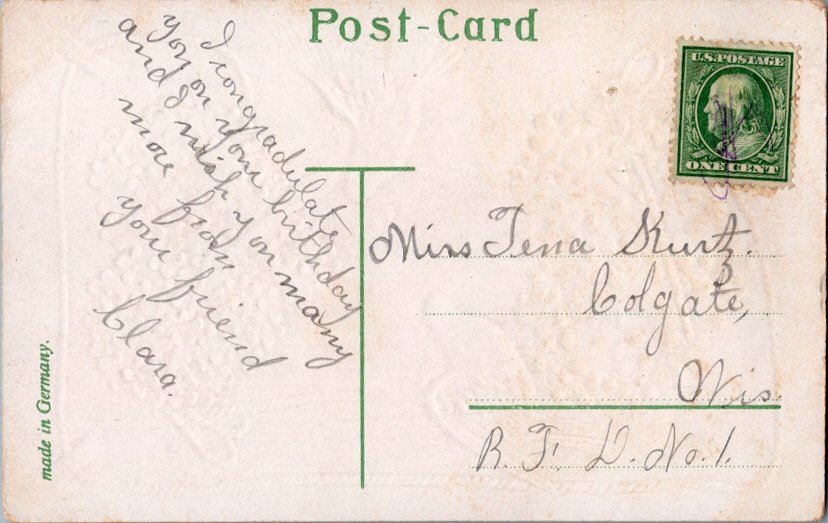 Post-Card
U.S. POSTAGE
ONE CENT
I congradulate
you on your birthday
and I wish you many
more from
your friend
Clara.
Miss Tena Kurtz.
Colgate,
Wis.
R. F. D. No. 1.
made in Germany.